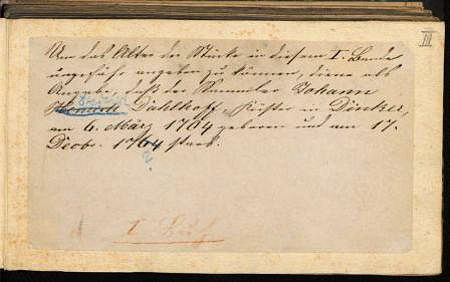 III
Um das Alter der Stücke in diesem I. Bande
ungefähr angeben zu können, diene als
Angabe, daß der Sammler Johann
Dahlhoff, Küster in Dinker,
am 6. März 1704 geboren und am 17.
Decbr. 1764 starb.
I.